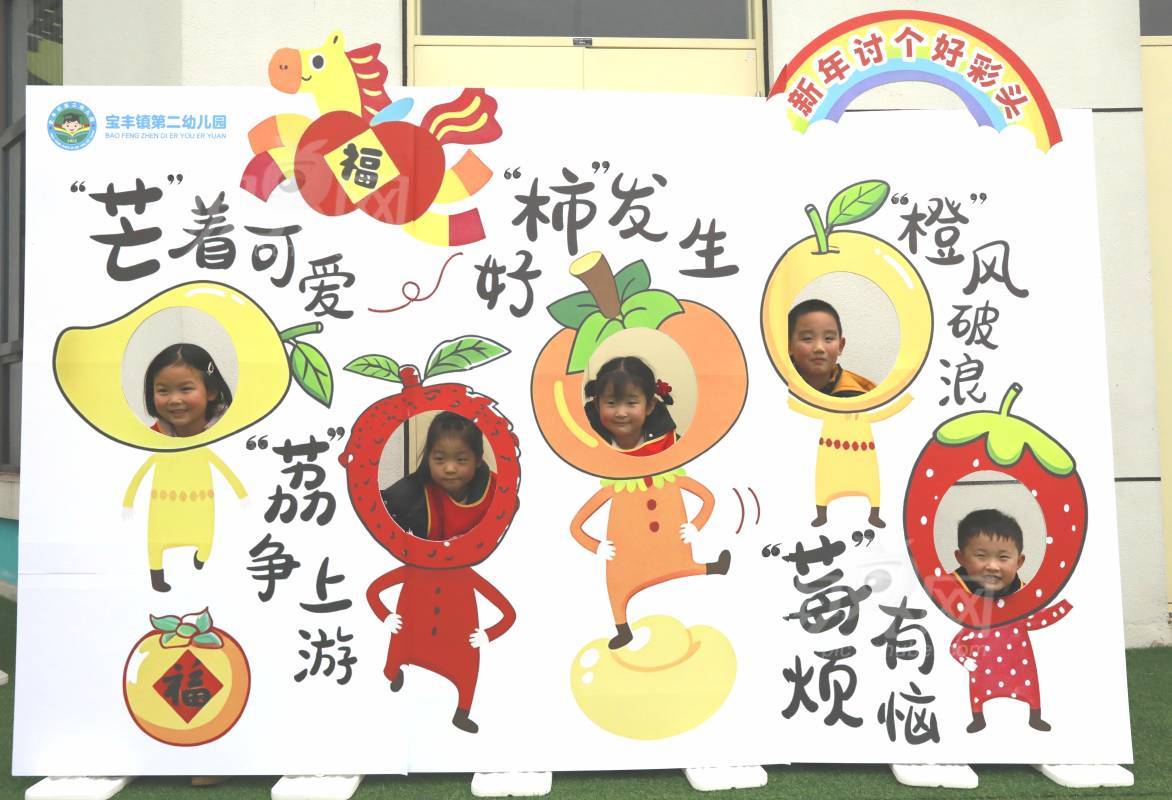 宝丰镇第二幼儿园
BAO FENG ZHEN DI ER YOU ER YUAN
新年讨个好彩头
福
“芒”着可爱
“柿”发
好生
“橙”风破浪
“荔”争上游
“莓”有烦恼
福